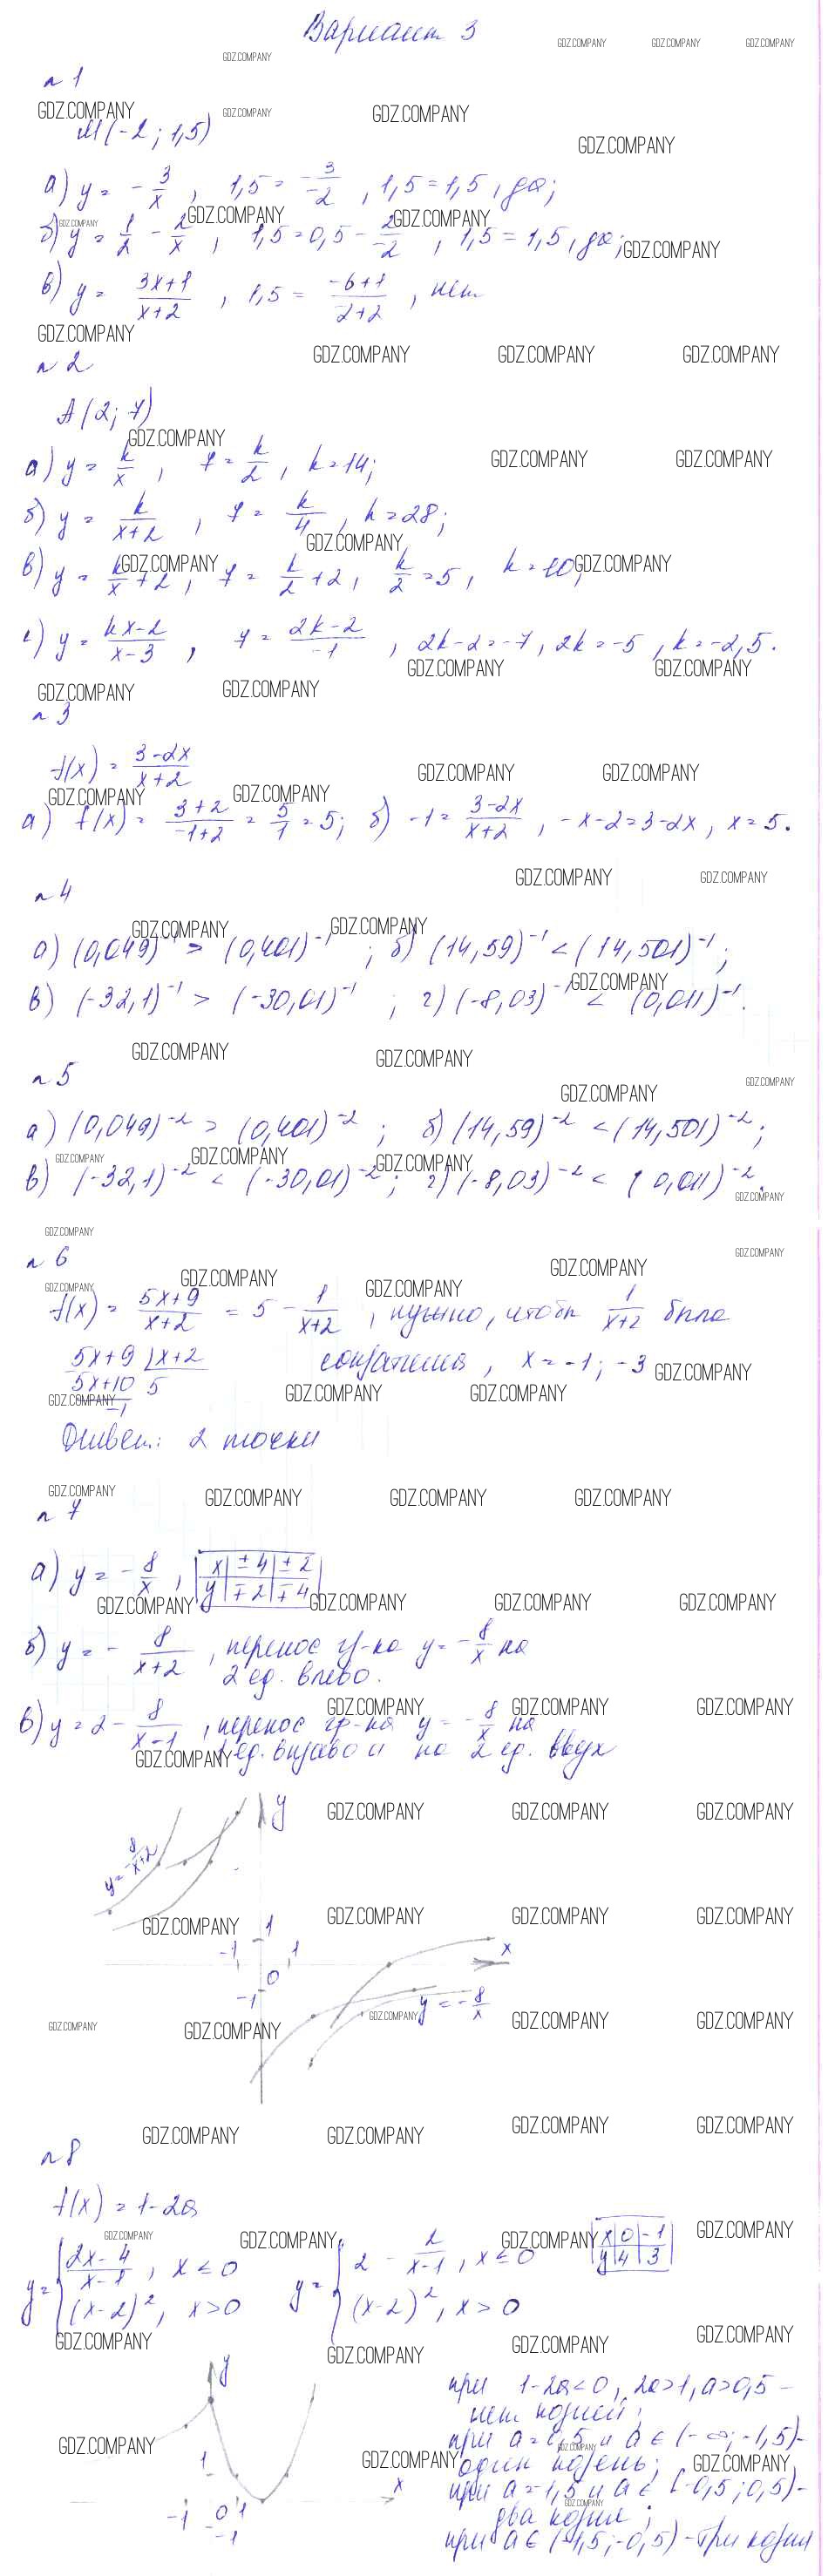 Вариант 3
n 1
M(-2; 1,5)
а) y = -3/x, 1,5 = -3/-2, 1,5 = 1,5, да;
б) y = 1/2 - 2/x, 1,5 = 0,5 - 2/-2, 1,5 = 1,5, да;
в) y = (3x+1)/(x+2), 1,5 = (-6+1)/(-2+2), нет
n 2
A(2; 7)
а) y = k/x, 7 = k/2, k = 14;
б) y = k/(x+2), 7 = k/4, k = 28;
в) y = k/x + 2, 7 = k/2 + 2, k/2 = 5, k = 10;
г) y = (kx-2)/(x-3), 7 = (2k-2)/-1, 2k-2 = -7, 2k = -5, k = -2,5.
n 3
f(x) = (3-2x)/(x+2)
а) f(x) = (3+2)/(-1+2) = 5/1 = 5; б) -1 = (3-2x)/(x+2), -x-2 = 3-2x, x = 5.
n 4
а) (0,049)⁻¹ > (0,401)⁻¹; б) (14,59)⁻¹ < (14,501)⁻¹;
в) (-32,1)⁻¹ > (-30,01)⁻¹; г) (-8,03)⁻¹ < (0,011)⁻¹.
n 5
а) (0,049)⁻² > (0,401)⁻²; б) (14,59)⁻² < (14,501)⁻²;
в) (-32,1)⁻² < (-30,01)⁻²; г) (-8,03)⁻² < (0,011)⁻².
n 6
f(x) = (5x+9)/(x+2) = 5 - 1/(x+2), нужно, чтобы 1/(x+2) была
5x+9 | x+2
сократима, x = -1; -3
5x+10 5
-1
Ответ: 2 точки
n 7
а) y = -8/x, x | ±4 | ±2
y | ∓2 | ∓4
б) y = -8/(x+2), перенос гр-ка y = -8/x на
2 ед. влево.
в) y = 2 - 8/(x-1), перенос гр-ка y = -8/x на
1 ед. вправо и на 2 ед. вверх
y
y = -8/(x+2)
1
-1 1 x
0
-1
y = -8/x
n 8
f(x) = 1-2a
y = { (2x-4)/(x-1), x ≤ 0 y = { 2 - 2/(x-1), x ≤ 0 x | 0 | -1
(x-2)², x > 0 (x-2)², x > 0 y | 4 | 3
y
при 1-2a < 0, 2a > 1, a > 0,5 -
нет корней;
при a = 0,5 и a ∈ (-∞; -1,5) -
один корень;
1
при a = 1,5 и a ∈ [-0,5; 0,5) -
x
-1 0 1
два корня;
-1
при a ∈ (-1,5; -0,5) - три корня
GDZ.COMPANY